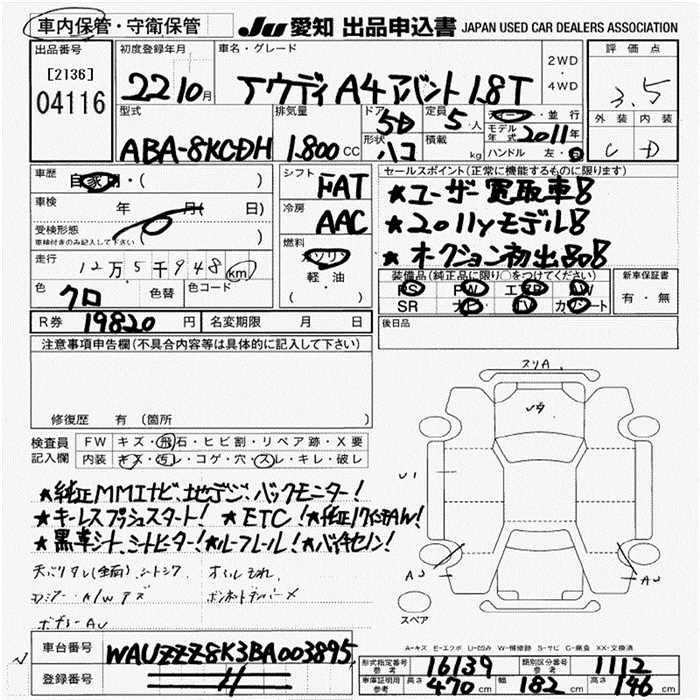 車内保管・守衛保管
JU 愛知 出品申込書 JAPAN USED CAR DEALERS ASSOCIATION
出品番号 [2136] 04116
初度登録年月 22 10月
車名・グレード アウディ A4 アバント 1.8T
2WD・4WD
評価点 3.5
外装 C 内装 D
型式 ABA-8KCDH
排気量 1.800CC
ドア 5D 形状 ハコ
定員 5・人 積載 kg
ディーラー・並行
モデル年式 2011年
ハンドル 左・右
車歴 自家用・( )
車検 年 月( 日)
受検形態 ( )
車検付きのみ記入して下さい
走行 12万5千948km
色 クロ 色替 色コード
シフト FAT
冷房 AAC
燃料 ガソリン 軽・油 ( )
セールスポイント(正常に機能するものに限ります)
★ユーザー買取車!!
★2011yモデル!!
★オークション初出品!!
装備品(純正品に限り○をつけてください)
PS PW エアB AW
SR ナビ TV カワシート
新車保証書 有・無
R券 19820円 名変期限 月 日
後日品
注意事項申告欄(不具合内容等は具体的に記入して下さい)
修復歴 有(箇所
検査員記入欄
FW キズ・飛石・ヒビ割・リペア跡・X要
内装 キズ・汚レ・コゲ・穴・スレ・キレ・破レ
★純正MMIナビ、地デジ、バックモニター!
★キーレスプッシュスタート! ★ETC! ★純正17インチAW!
★黒革シート、シートヒーター! ★ルーフレール! ★バイキセノン!
天バリタレ(全面)
オイルもれ
A/Wキズ
スリA
U1
AU
AU
スペア
A-キズ E-エクボ U-凹み W-補修跡 S-サビ C-腐食 XX-交換済
車台番号 WAUZZZ8K3BA003895
登録番号
形式指定番号 参考 16139 類別区分番号 参考 1112
車庫証明用 参考 長さ 470cm 幅 182cm 高さ 146cm